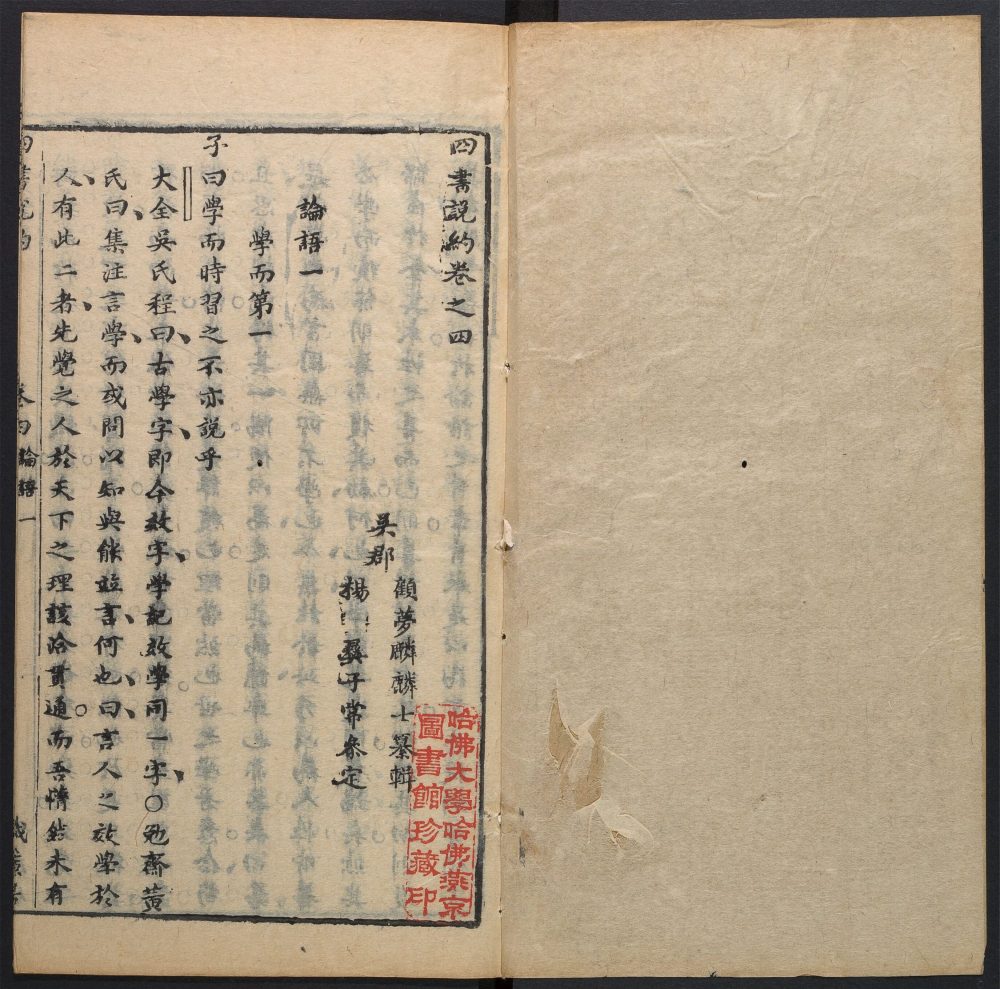 四書說約卷之四
吳郡
顧夢麟麟士纂輯
楊彝子常叅定
論語一
學而第一
子曰學而時習之不亦說乎
大全吳氏程曰古學字卽今效字學記效學同一字○勉齋黃
氏曰集注言學而或問以知與能並言何也曰言人之效學於
人有此二者先覺之人於天下之理該洽貫通而吾懵然未有
四書說約
卷四論語一
哈佛大學哈佛燕京
圖書館珍藏印